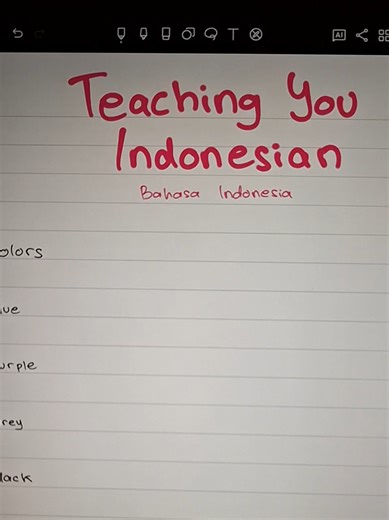 AI
Teaching You
Indonesian
Bahasa Indonesia
olors
ue
urple
rey
lack